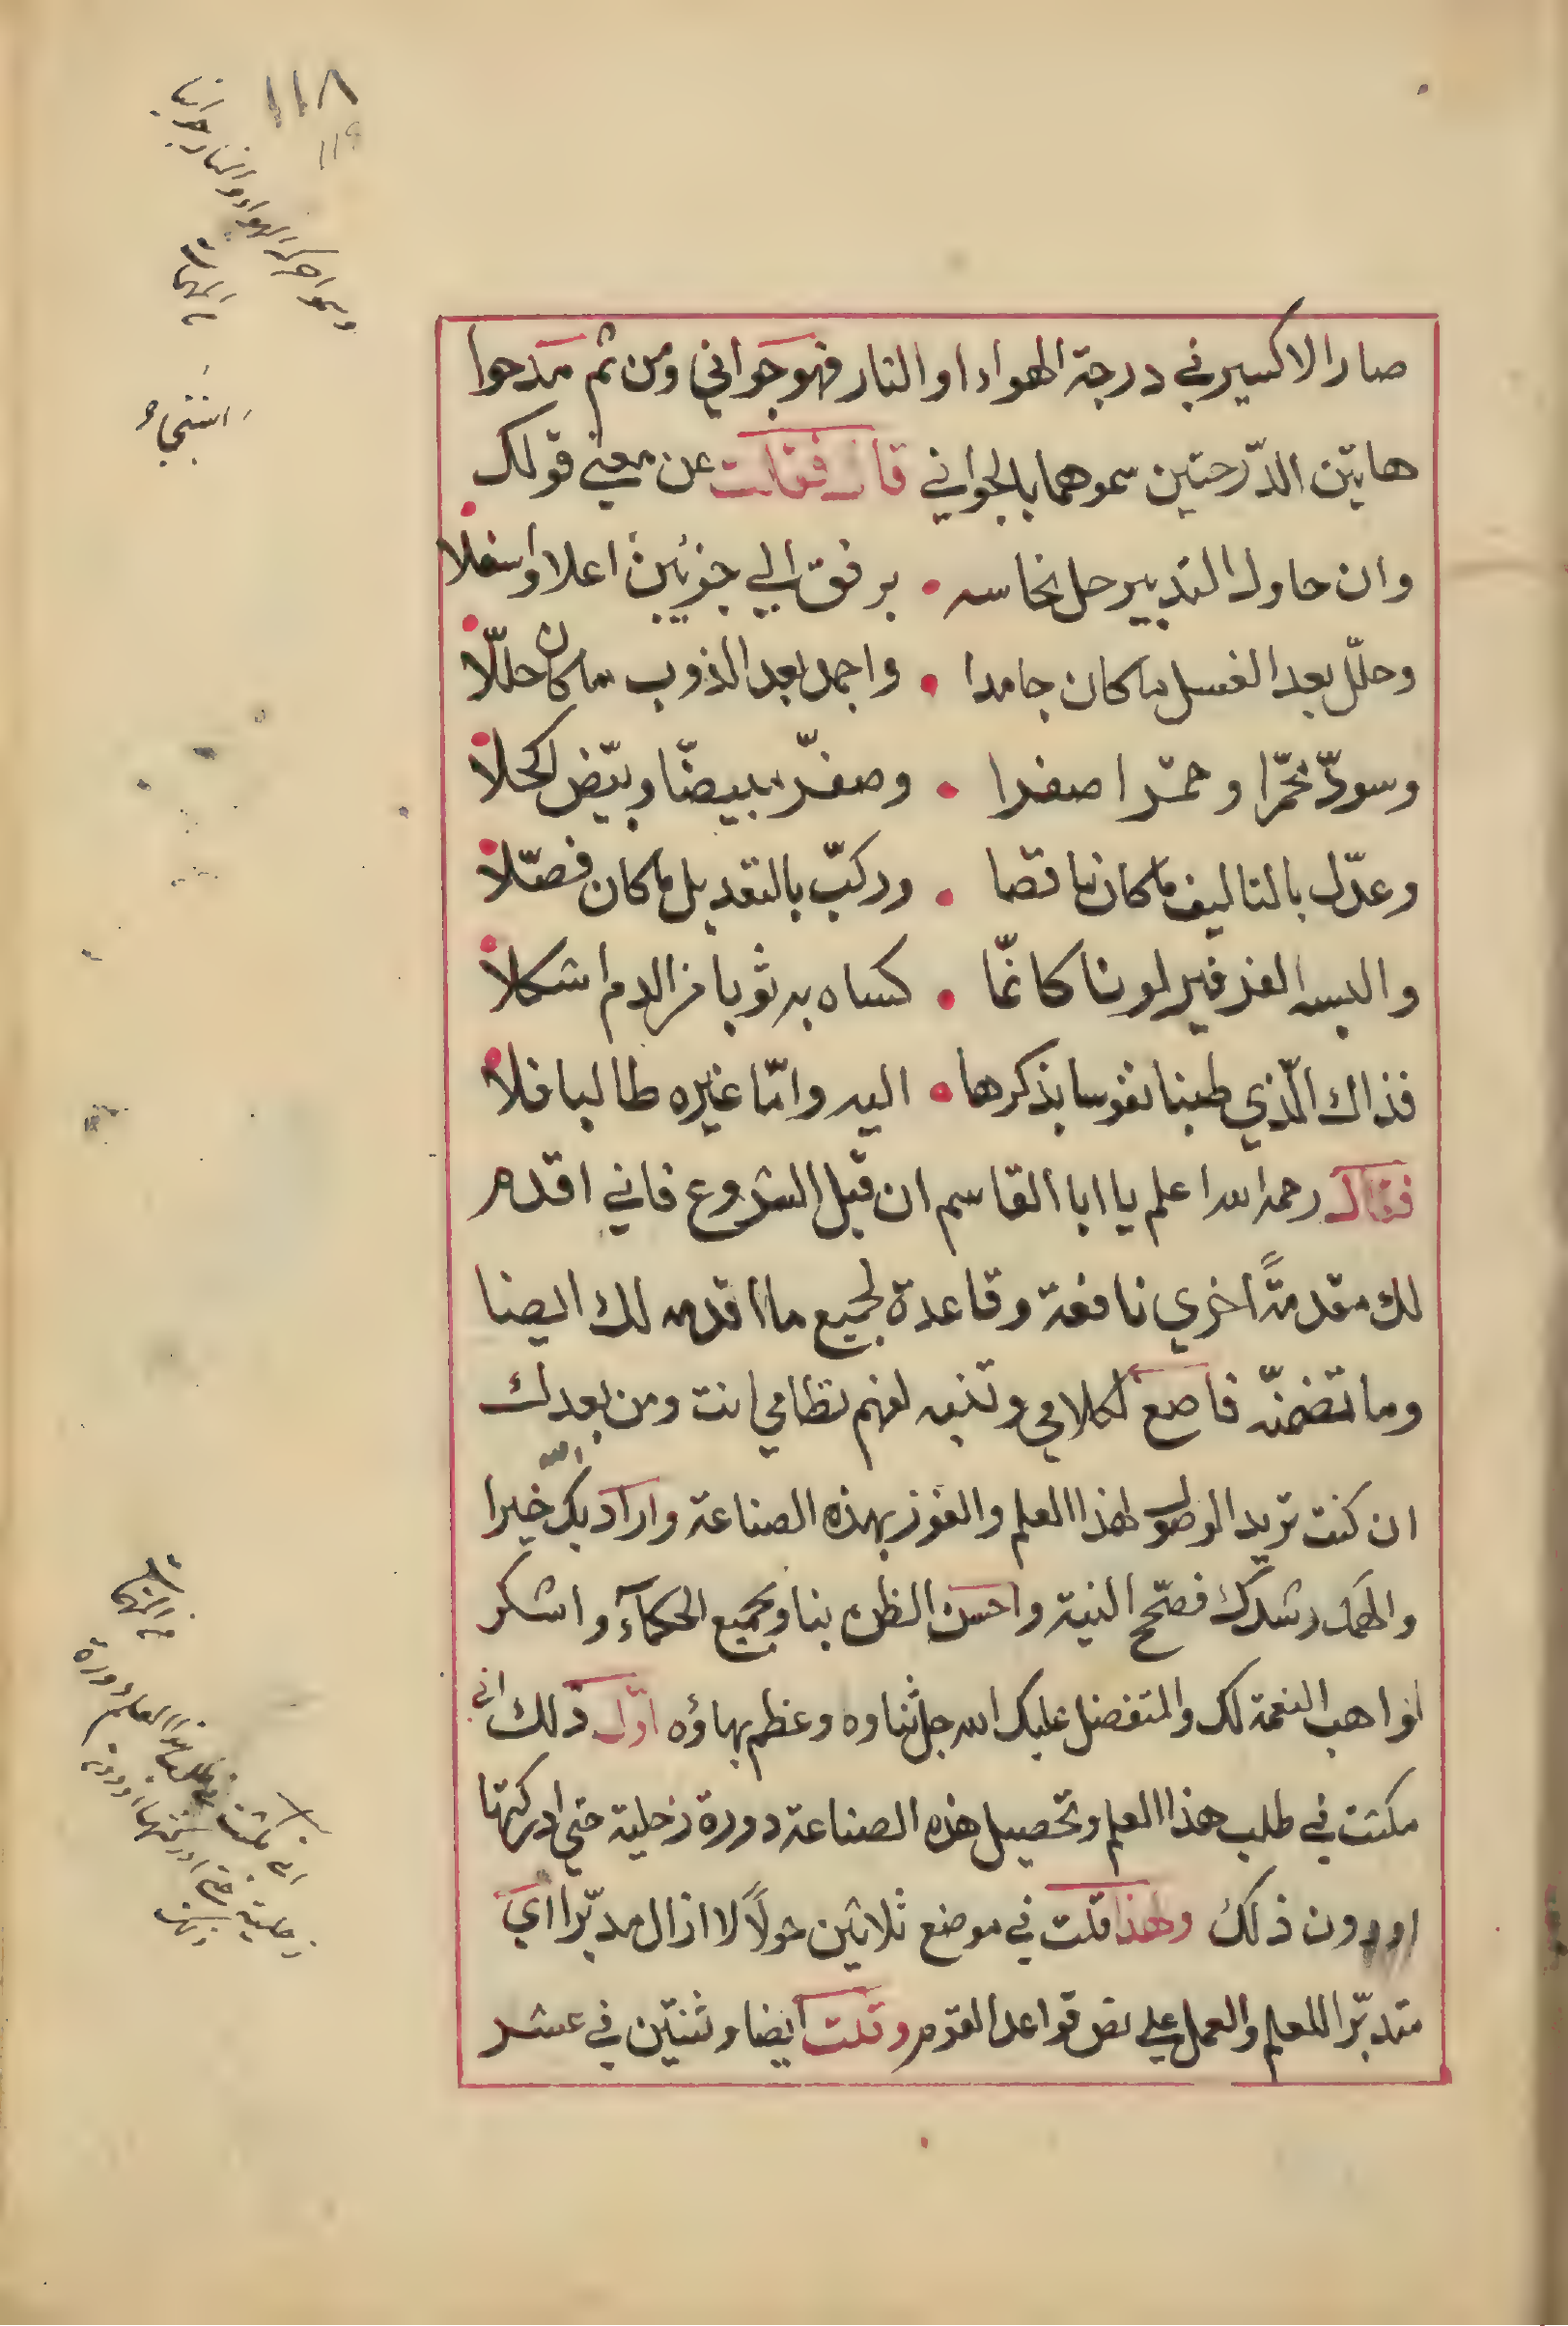 ١١٨
١١٩
صار الاكسير في درجة الهواء او النار فهو جواني ومن ثم مدحوا
هاتين الدّرجتين سموهما بالجواني قال فقلت عن معني قولك
وان حاول التدبير حل نحاسه • برفق الي جزئين اعلا واسفلا
وحلّل بعد الغسل ما كان جامدا • واجمد بعد الذوب ما كان حللّا
وسودّ محمّرا وحمّر اصفرا • وصفّر مبيضّا وبيّض اكحلا
وعدّل بالتاليف ما كان ناقصا • وركبّ بالتعديل ما كان فصّلا
والبسه الفرفير لونا كانمّا • كساه به ثوبا من الدم اشكلا
فذاك الّذي طبنا نفوسا بذكرها • اليه وامّا غيره طالبا فلا
فقال رحمه الله اعلم يا ابا القاسم ان قبل الشروع فاني اقدم
لك مقدمةً اخري نافعة وقاعدة لجميع ما اقدمه لك ايضا
وما تضمنّه فاصغ لكلامي وتنبه لفهم نظامي انت ومن بعدك
ان كنت تريد الوصول لهذا العلم والفوز بهذه الصناعة واراد بك الله خيرا
والهمك رشدك فصحّح النية واحسن الظن بنا وبجميع الحكمآء واشكر
لواهب النعمة لك والمتفضل عليك الله جل ثناوه وعظم بهاؤه اوّل ذلك اني
مكثت في طلب هذا العلم وتحصيل هذه الصناعة دورة زحلية حتي ادركتها
او دون ذلك ولهذا قلت في موضع ثلاثين حولاً لا ازال مدبّرا اي
متدبّرا للعلم والعمل علي نص قواعد القوم وقلت ايضا وثنتين في عشر